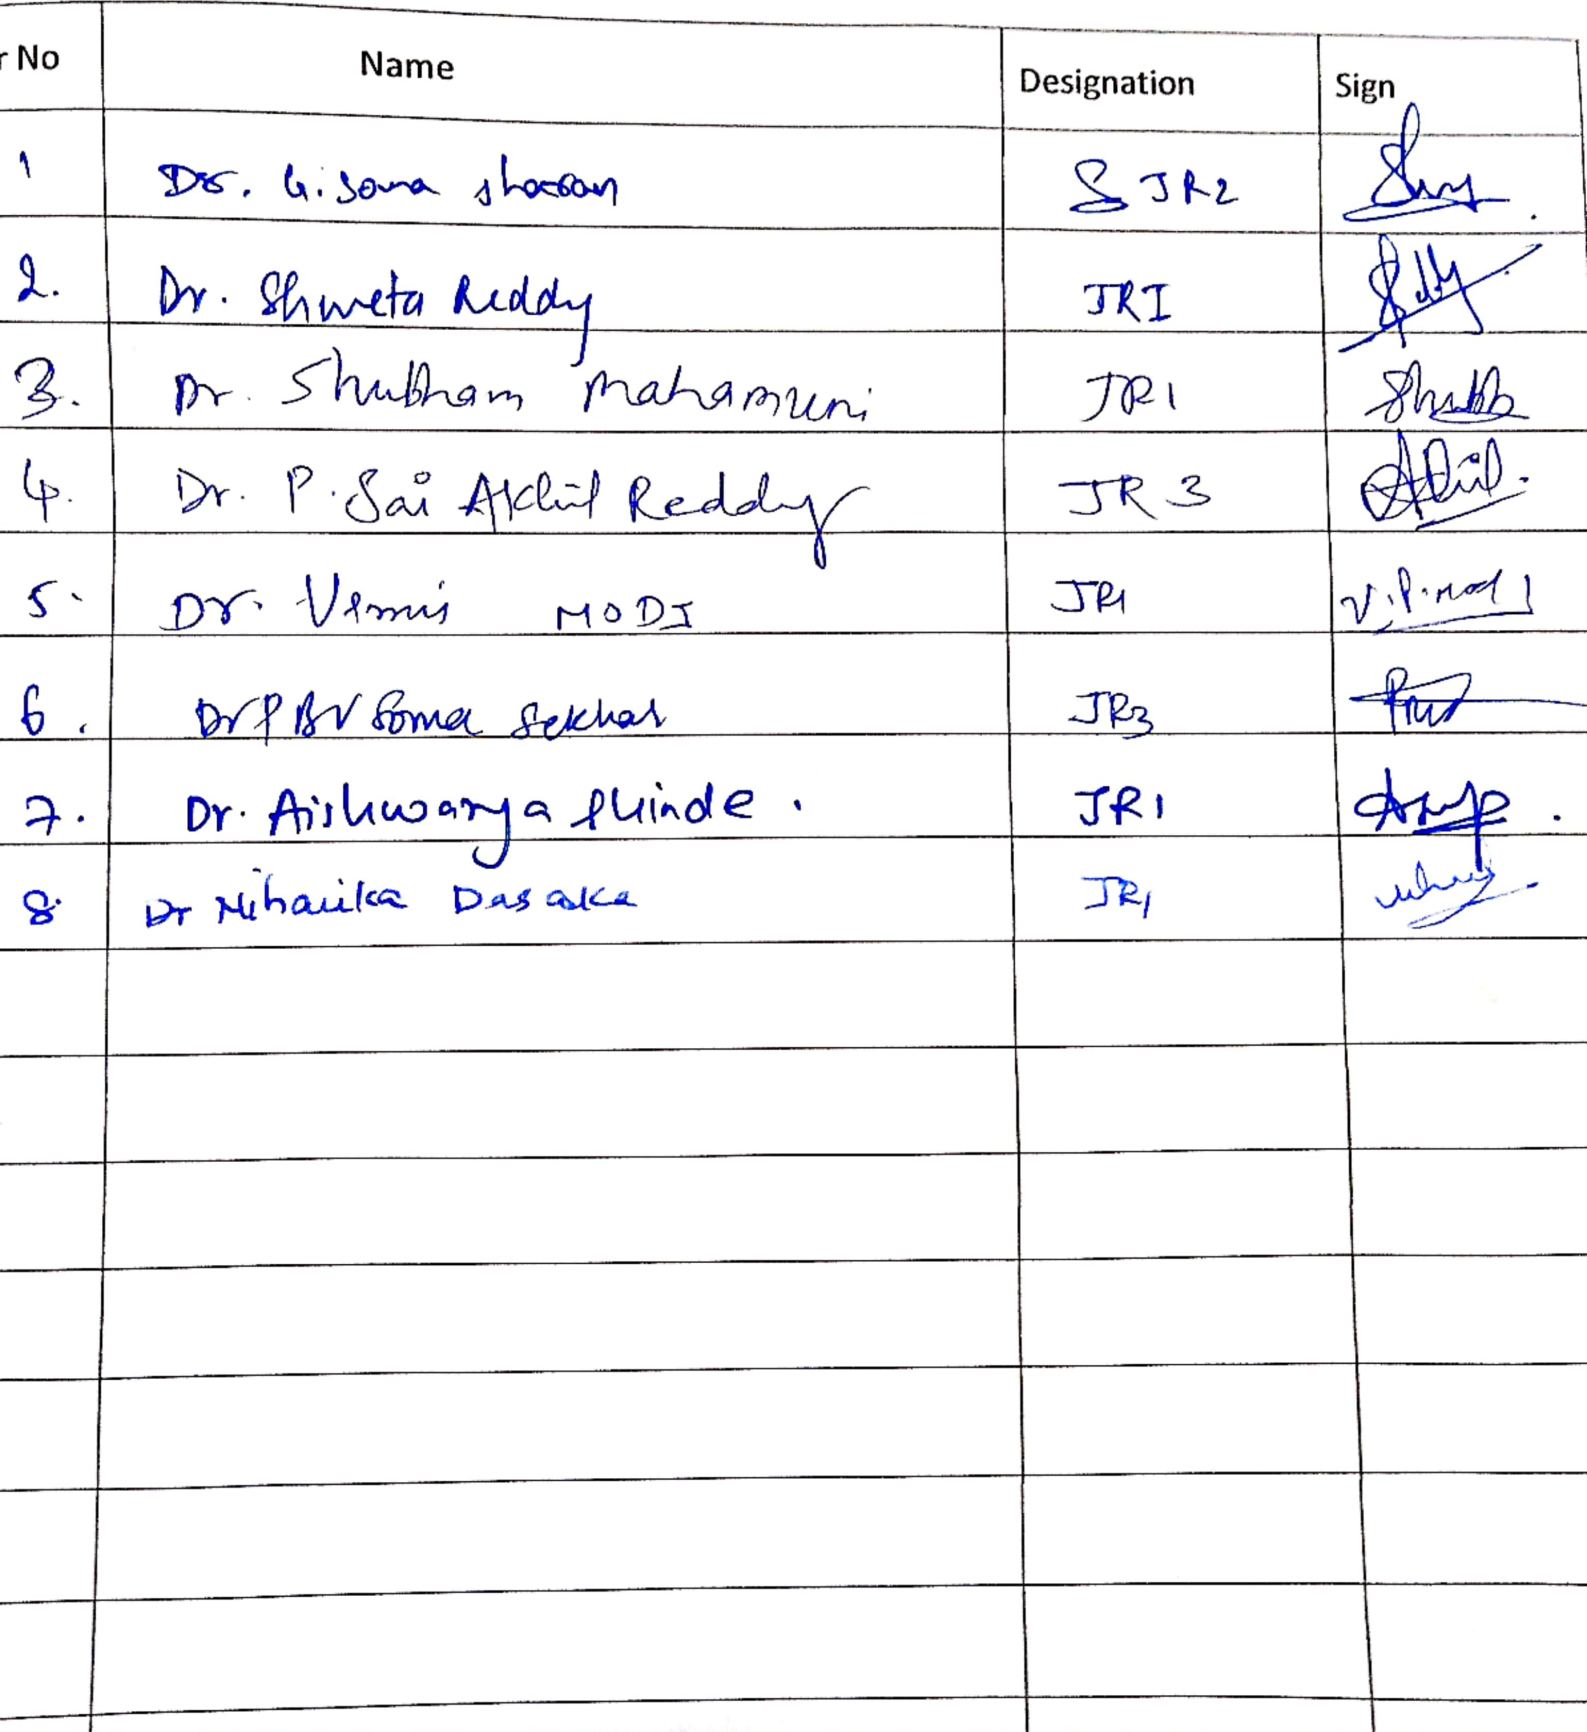 r No Name Designation Sign
1 Dr. G. Soma sharan JR2
2. Dr. Shweta Reddy JRI
3. Dr. Shubham Mahamuni JR1 Shubh
4. Dr. P. Sai Akhil Reddy JR 3 Akhil.
5. Dr. MODI JR1 V.P.Modi
6. Dr P BV Soma Sekhar JR3
7. Dr. Aishwarya Shinde. JR1
8. Dr Niharika Dasaka JR1